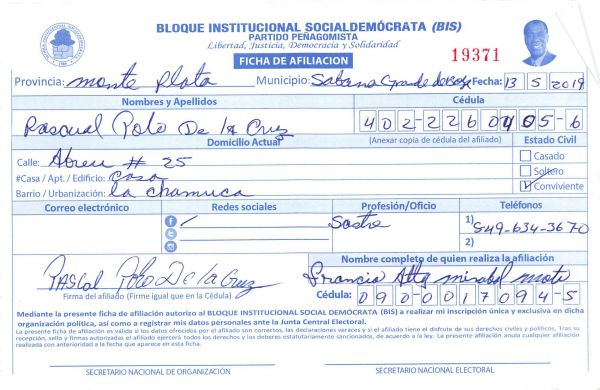 BLOQUE INSTITUCIONAL SOCIALDEMÓCRATA (BIS)
PARTIDO PEÑAGOMISTA
Libertad, Justicia, Democracia y Solidaridad
FICHA DE AFILIACION
19371
Provincia: Monte Plata Municipio: Sabana Grande de Boya Fecha: 13 5 2019
Nombres y Apellidos Cédula
Pascual Polo De la Cruz 402-2260405-6
Domicilio Actual (Anexar copia de cédula del afiliado) Estado Civil
Calle: Abreu # 25 Casado
#Casa / Apt. / Edificio: Casa Soltero
Barrio / Urbanización: la chamuca Conviviente
Correo electrónico Redes sociales Profesión/Oficio Teléfonos
Sastre 1) 849-634-3670
2)
Nombre completo de quien realiza la afiliación
Pascal Polo De la Cruz Francia mirabal
Firma del afiliado (Firme igual que en la Cédula). Cédula: 090-0017094-5
Mediante la presente ficha de afiliación autorizo al BLOQUE INSTITUCIONAL SOCIAL DEMÓCRATA (BIS) a realizar mi inscripción única y exclusiva en dicha
organización política, así como a registrar mis datos personales ante la Junta Central Electoral.
La presente ficha de afiliación en valida si los datos ofrecidos por el afiliado son correctos, las declaraciones veraces y si el afiliado tiene el disfrute de sus derechos civiles y políticos. Tras su
recepción, sello y firmas autorizadas el afiliado ejercerá todos los derechos y los deberes estatutariamente sancionados, de acuerdo a la ley. La presente afiliación anula cualquier afiliación
realizada con anterioridad a la fecha que aparece en esta ficha.
SECRETARIO NACIONAL DE ORGANIZACIÓN SECRETARIO NACIONAL ELECTORAL